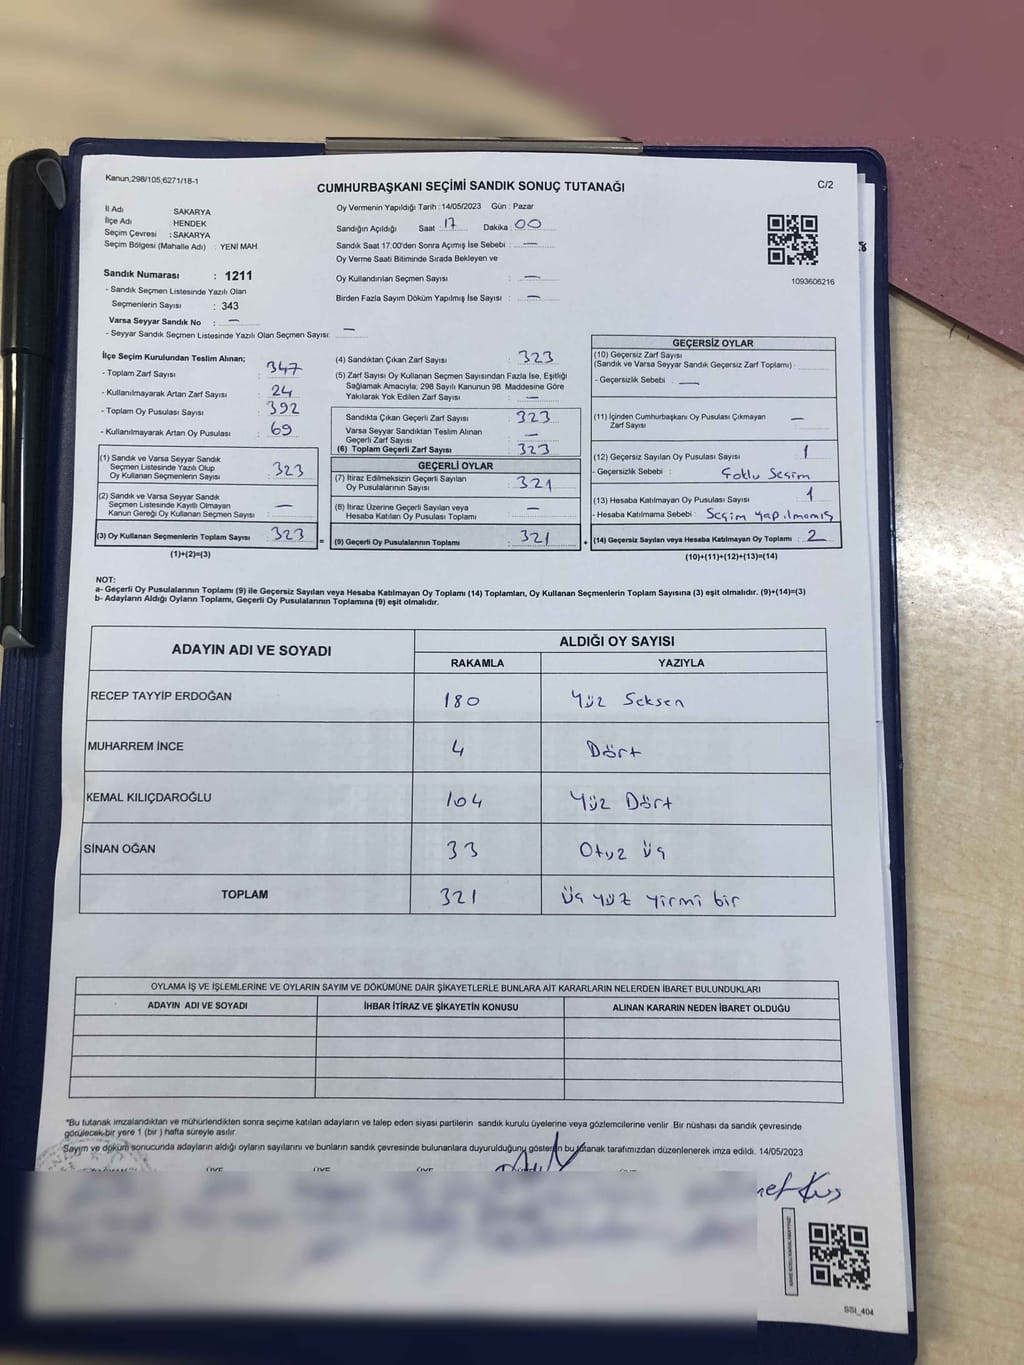 Kanun,298/105,6271/18-1
CUMHURBAŞKANI SEÇİMİ SANDIK SONUÇ TUTANAĞI
C/2
İl Adı : SAKARYA
İlçe Adı : HENDEK
Seçim Çevresi : SAKARYA
Seçim Bölgesi (Mahalle Adı) : YENİ MAH.
Sandık Numarası : 1211
- Sandık Seçmen Listesinde Yazılı Olan
Seçmenlerin Sayısı : 343
Varsa Seyyar Sandık No : —
- Seyyar Sandık Seçmen Listesinde Yazılı Olan Seçmen Sayısı: —
Oy Vermenin Yapıldığı Tarih : 14/05/2023 Gün : Pazar
Sandığın Açıldığı Saat : 17 Dakika : 00
Sandık Saat 17.00'den Sonra Açımış İse Sebebi : —
Oy Verme Saati Bitiminde Sırada Bekleyen ve
Oy Kullandırılan Seçmen Sayısı : —
Birden Fazla Sayım Döküm Yapılmış İse Sayısı : —
1093606216
İlçe Seçim Kurulundan Teslim Alınan;
- Toplam Zarf Sayısı : 347
- Kullanılmayarak Artan Zarf Sayısı : 24
- Toplam Oy Pusulası Sayısı : 392
- Kullanılmayarak Artan Oy Pusulası : 69
(1) Sandık ve Varsa Seyyar Sandık
Seçmen Listesinde Yazılı Olup
Oy Kullanan Seçmenlerin Sayısı : 323
(2) Sandık ve Varsa Seyyar Sandık
Seçmen Listesinde Kayıtlı Olmayan
Kanun Gereği Oy Kullanan Seçmen Sayısı : —
(3) Oy Kullanan Seçmenlerin Toplam Sayısı : 323
(1)+(2)=(3)
(4) Sandıktan Çıkan Zarf Sayısı : 323
(5) Zarf Sayısı Oy Kullanan Seçmen Sayısından Fazla İse, Eşitliği
Sağlamak Amacıyla; 298 Sayılı Kanunun 98. Maddesine Göre
Yakılarak Yok Edilen Zarf Sayısı : —
Sandıkta Çıkan Geçerli Zarf Sayısı : 323
Varsa Seyyar Sandıktan Teslim Alınan
Geçerli Zarf Sayısı : —
(6) Toplam Geçerli Zarf Sayısı : 323
GEÇERLİ OYLAR
(7) İtiraz Edilmeksizin Geçerli Sayılan
Oy Pusulalarının Sayısı : 321
(8) İtiraz Üzerine Geçerli Sayılan veya
Hesaba Katılan Oy Pusulası Toplamı : —
= (9) Geçerli Oy Pusulalarının Toplamı : 321
GEÇERSİZ OYLAR
(10) Geçersiz Zarf Sayısı
(Sandık ve Varsa Seyyar Sandık Geçersiz Zarf Toplamı) :
- Geçersizlik Sebebi : —
(11) İçinden Cumhurbaşkanı Oy Pusulası Çıkmayan
Zarf Sayısı : —
(12) Geçersiz Sayılan Oy Pusulası Sayısı : 1
- Geçersizlik Sebebi : Çoklu Seçim
(13) Hesaba Katılmayan Oy Pusulası Sayısı : 1
- Hesaba Katılmama Sebebi : Seçim Yapılmamış
+ (14) Geçersiz Sayılan veya Hesaba Katılmayan Oy Toplamı : 2
(10)+(11)+(12)+(13)=(14)
NOT:
a- Geçerli Oy Pusulalarının Toplamı (9) ile Geçersiz Sayılan veya Hesaba Katılmayan Oy Toplamı (14) Toplamları, Oy Kullanan Seçmenlerin Toplam Sayısına (3) eşit olmalıdır. (9)+(14)=(3)
b- Adayların Aldığı Oyların Toplamı, Geçerli Oy Pusulalarının Toplamına (9) eşit olmalıdır.
ADAYIN ADI VE SOYADI ALDIĞI OY SAYISI
RAKAMLA YAZIYLA
RECEP TAYYİP ERDOĞAN 180 Yüz Seksen
MUHARREM İNCE 4 Dört
KEMAL KILIÇDAROĞLU 104 Yüz Dört
SİNAN OĞAN 33 Otuz üç
TOPLAM 321 Üç yüz yirmi bir
OYLAMA İŞ VE İŞLEMLERİNE VE OYLARIN SAYIM VE DÖKÜMÜNE DAİR ŞİKAYETLERLE BUNLARA AİT KARARLARIN NELERDEN İBARET BULUNDUKLARI
ADAYIN ADI VE SOYADI İHBAR İTİRAZ VE ŞİKAYETİN KONUSU ALINAN KARARIN NEDEN İBARET OLDUĞU
"Bu tutanak imzalandıktan ve mühürlendikten sonra seçime katılan adayların ve talep eden siyasi partilerin sandık kurulu üyelerine veya gözlemcilerine verilir. Bir nüshası da sandık çevresinde
görülecek bir yere 1 (bir ) hafta süreyle asılır.
Sayım ve döküm sonucunda adayların aldığı oyların sayılarını ve bunların sandık çevresinde bulunanlara duyurulduğunu gösteren bu tutanak tarafımızdan düzenlenerek imza edildi. 14/05/2023
ÜYE ÜYE ÜYE
SSI_404